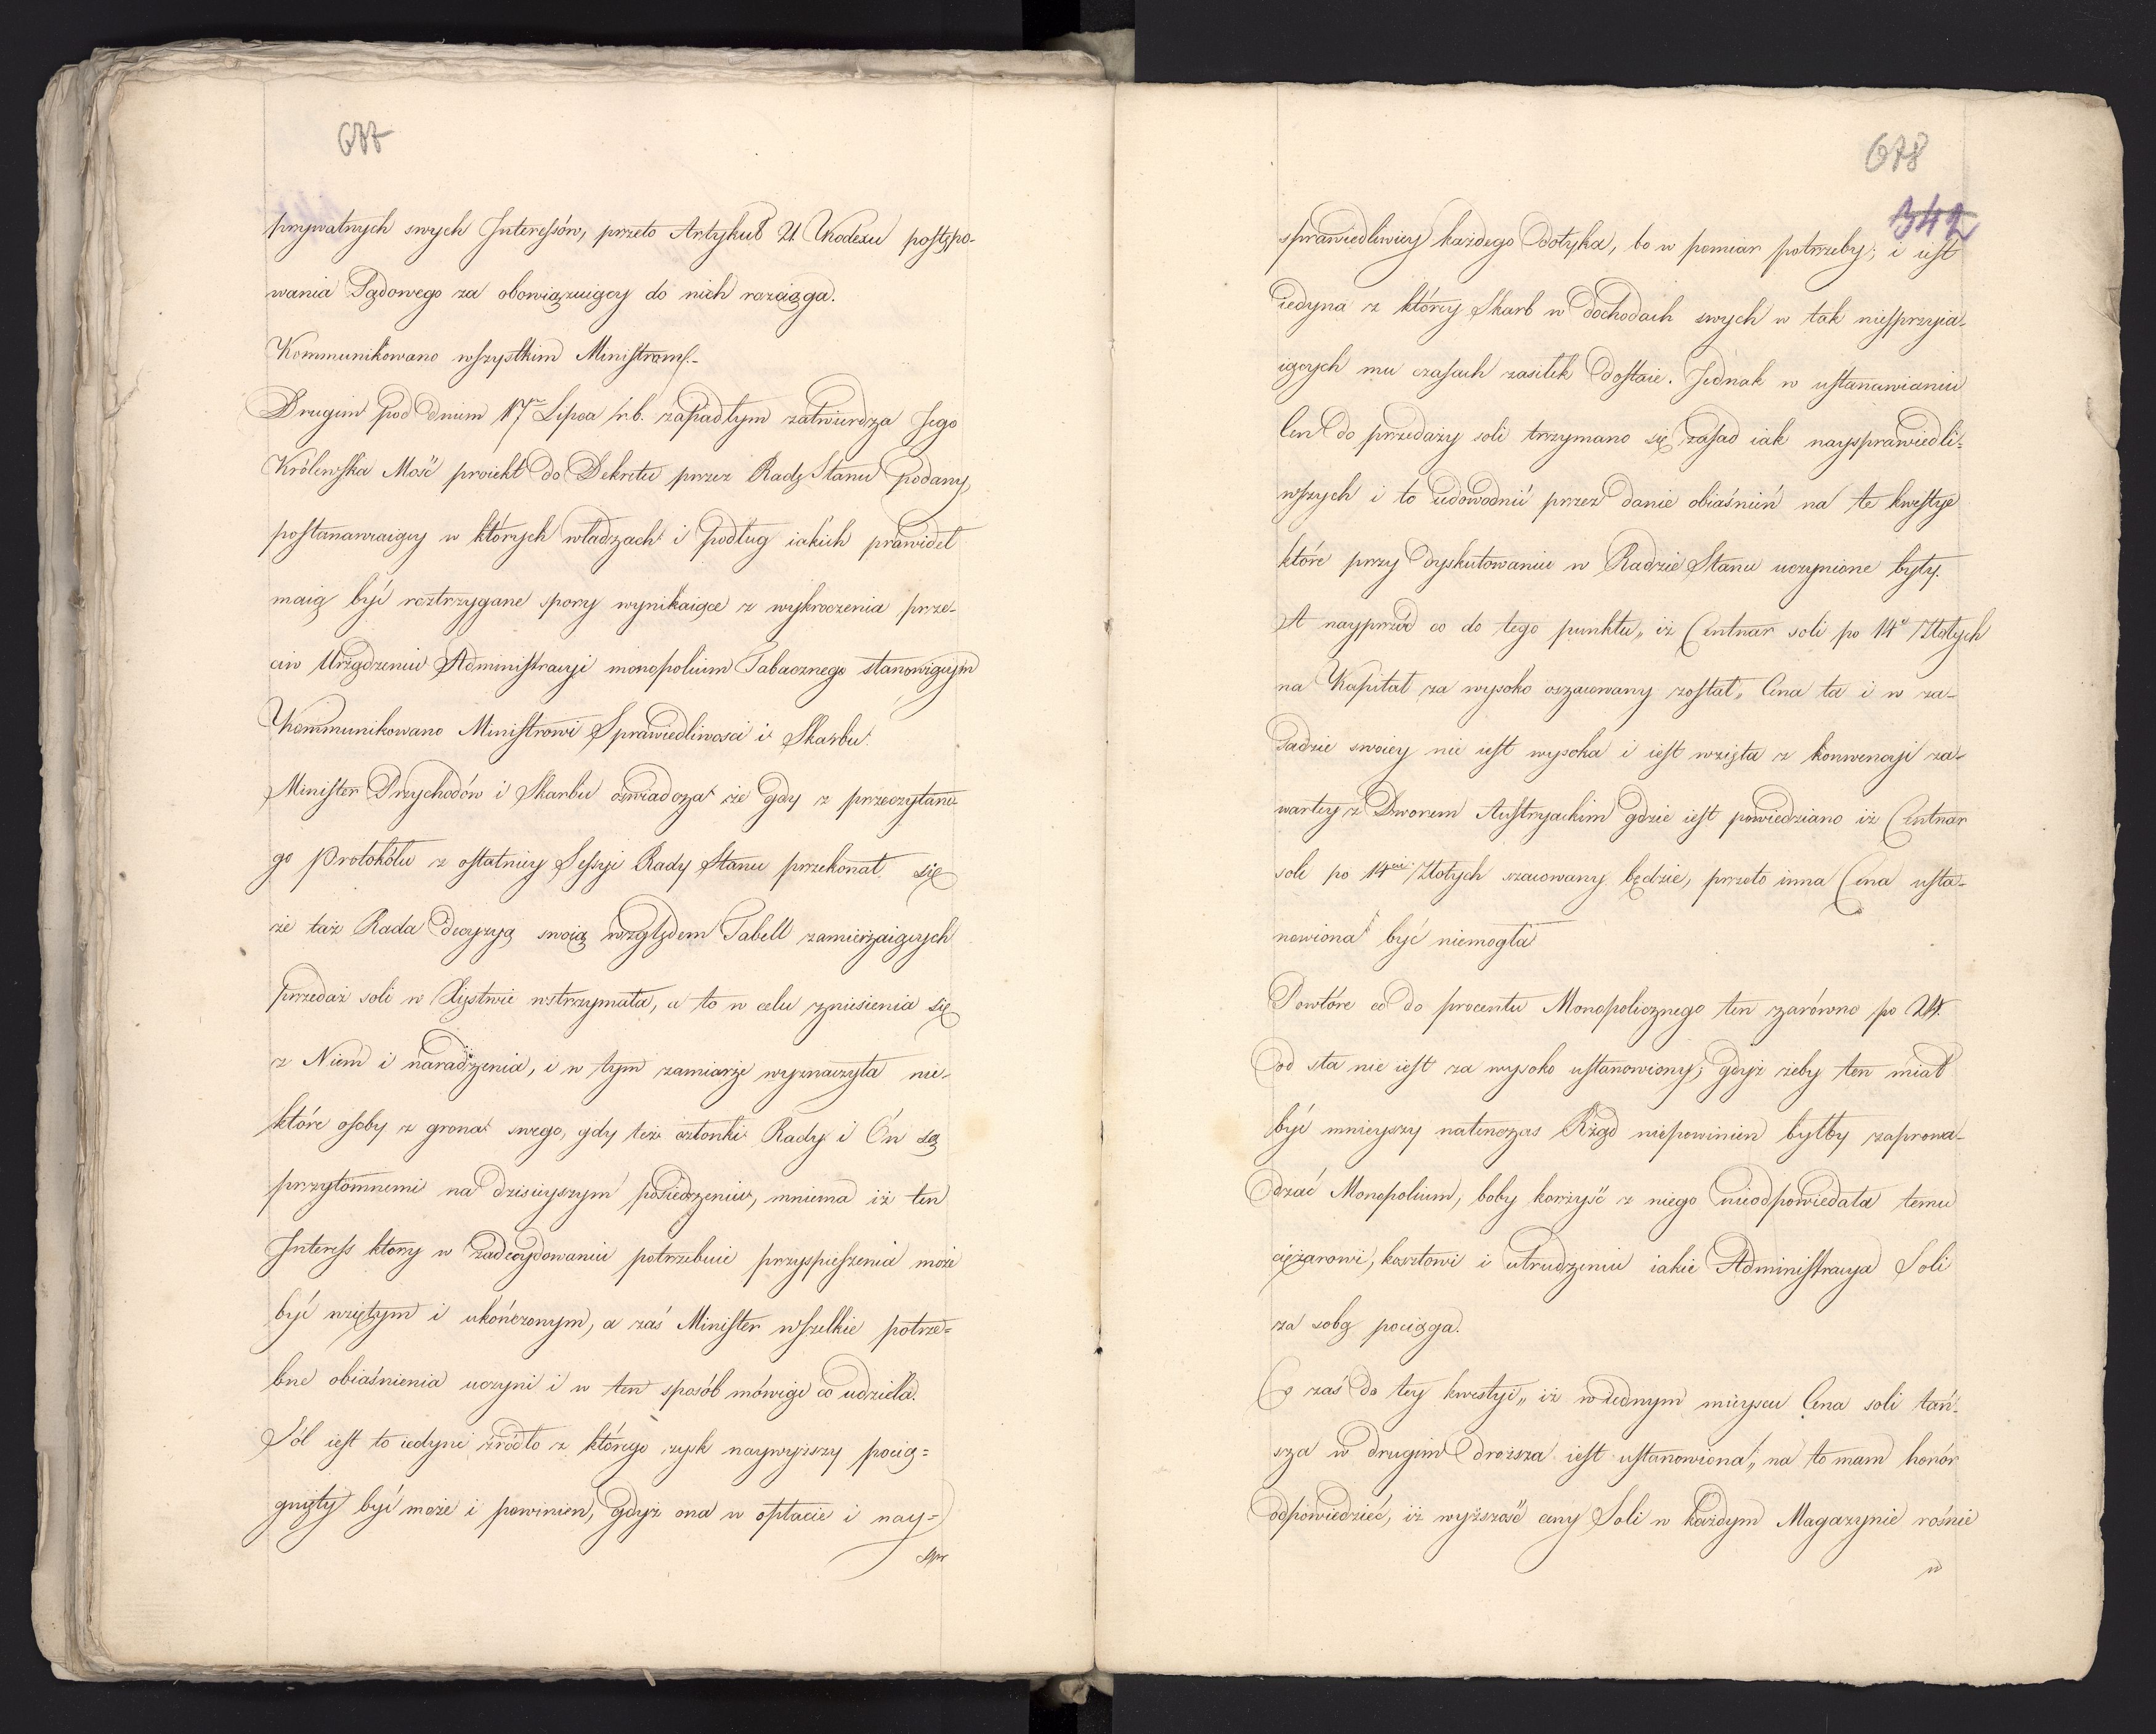 677
prywatnych swych Interessów, przeto Artykuł 21. Kodexu postępo-
wania Sądowego za obowiązuiący do nich rozciąga.
Kommunikowano wszystkim Ministrom.-
Drugim pod dniem 17ym Lipca r.b. zapadłym zatwierdza Jego
Królewska Mość proiekt do Dekretu przez Radę Stanu podany,
postanawiaiący w których władzach i podług iakich prawideł
maią być roztrzygane spory wynikaiące z wykroczenia prze-
ciw Urządzeniu Administracyi monopolium Tabacznego stanowiącym
Kommunikowano Ministrowi Sprawiedliwosci i Skarbu.
Minister Przychodów i Skarbu oświadcza że gdy z przeczytane-
go Protokółu z ostatniey Sessyi Rady Stanu przekonał się
że taż Rada decyzyą swoią względem Tabell zamierzaiących
przedaż soli w Xięstwie wstrzymała, a to w celu zniesienia się
z Niem i naradzenia, i w tym zamiarze wyznaczyła nie-
które osoby z grona swego, gdy też członki Rady i On są
przytomnemi na dzisieyszym posiedzeniu, mniema iż ten
Interess ktory w zadecydowaniu potrzebuie przyspieszenia może
być wziętym i ukończonym, a zaś Minister wszelkie potrze-
bne obiaśnienia uczyni i w ten sposób mówiąc co udziela.
Sól iest to iedyne źródło z którego zysk naywyższy pocią-
gnięty być może i powinien, gdyż ona w opłacie i nay-
spr
678
342
sprawiedliwiey każdego dotyka, bo w pomiar potrzeby; i iest
iedyna z którey Skarb w dochodach swych w tak niesprzyia-
iących mu czasach zasiłek dostaie. Jednak w ustanawianiu
Cen do przedaży soli trzymano się zasad iak naysprawiedli-
wszych i to udowodnić przez danie obiaśnień na te kwestye
które przy dyskutowaniu w Radzie Stanu uczynione były.
A nayprzód co do tego punktu„ iż Centnar soli po 14 Złotych
na Kapitał za wysoko oszacowany został„ Cena ta i w za-
sadzie swoiey nie iest wysoka i iest wzięta z konwencyi za-
wartey z Dworem Austryackim gdzie iest powiedziano iż Centnar
soli po 14cie Złotych szacowany będzie, przeto inna Cena usta-
nowiona być niemogła
Powtóre co do procentu Monopolicznego ten zarówno po 24.
od sta nie iest za wysoko ustanowiony; gdyż żeby ten miał
być mnieyszy natenczas Rząd niepowinien byłby zaprowa-
dzać Monopolium, boby korzyść z niego nieodpowiedała temu
ciężarowi, kosztowi i utrudzeniu iakie Administracya Soli
za sobą pociąga.
Co zaś do tey kwestyi„ iż w iednym mieyscu Cena soli tań-
sza w drugim droższa iest ustanowiona„ na to mam honór
odpowiedzieć, iż wyższość ceny Soli w każdym Magazynie rośnie
w